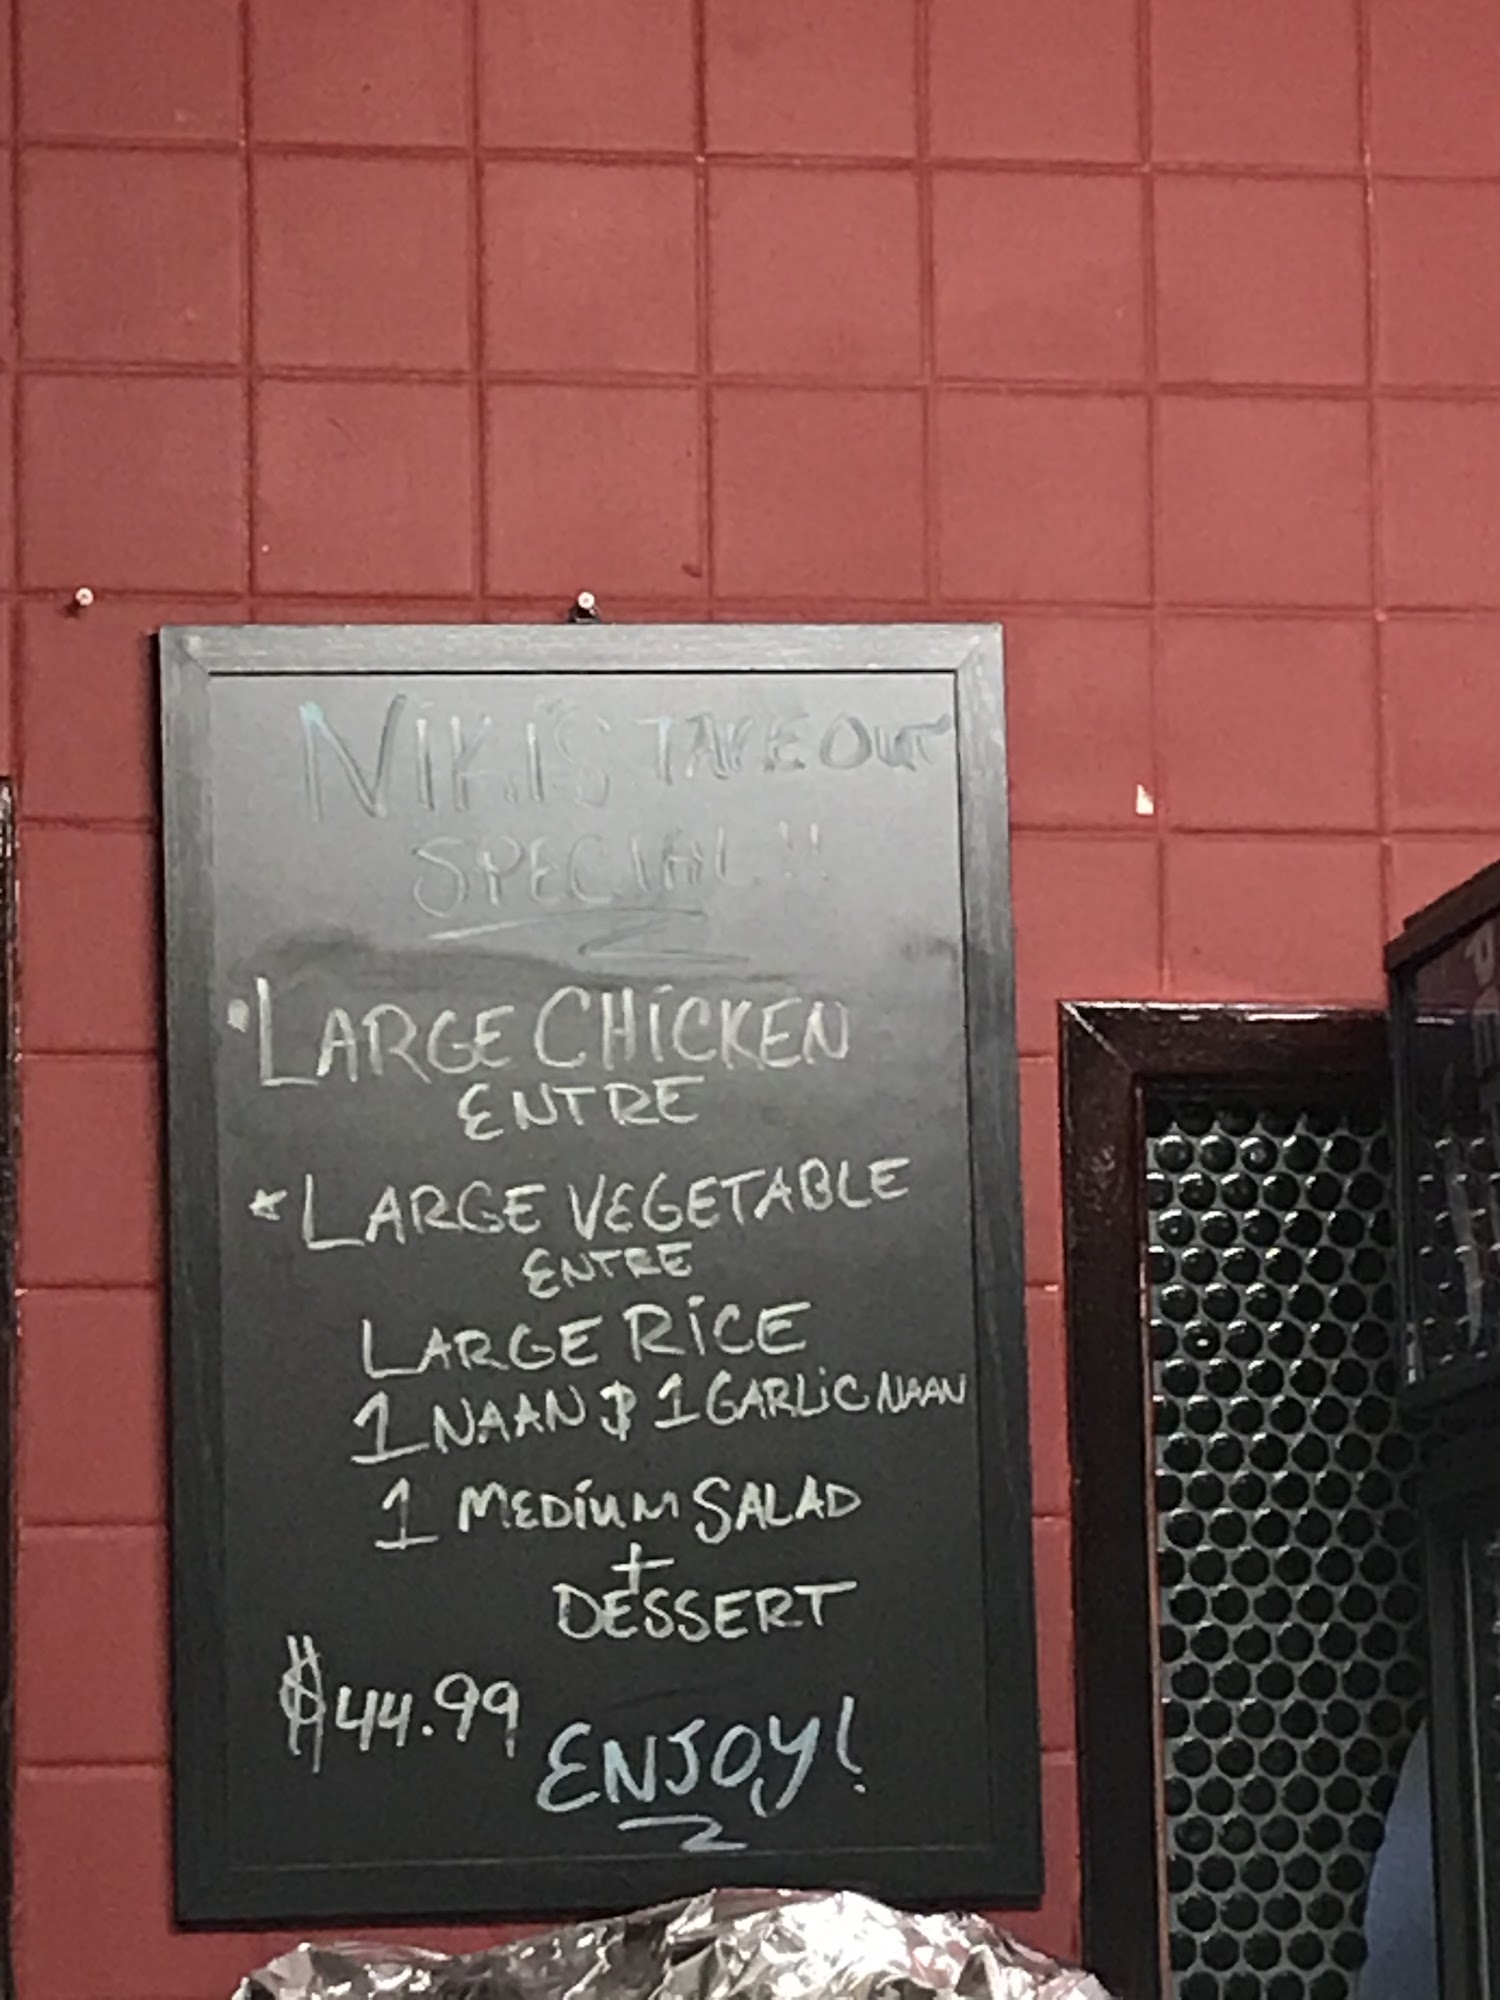 NIKI'S TAKE OUT
SPECIAL!!
• LARGE CHICKEN
ENTRE
* LARGE VEGETABLE
ENTRE
LARGE RICE
1 NAAN & 1 GARLIC NAAN
1 MEDIUM SALAD
+
DESSERT
$44.99
ENJOY!